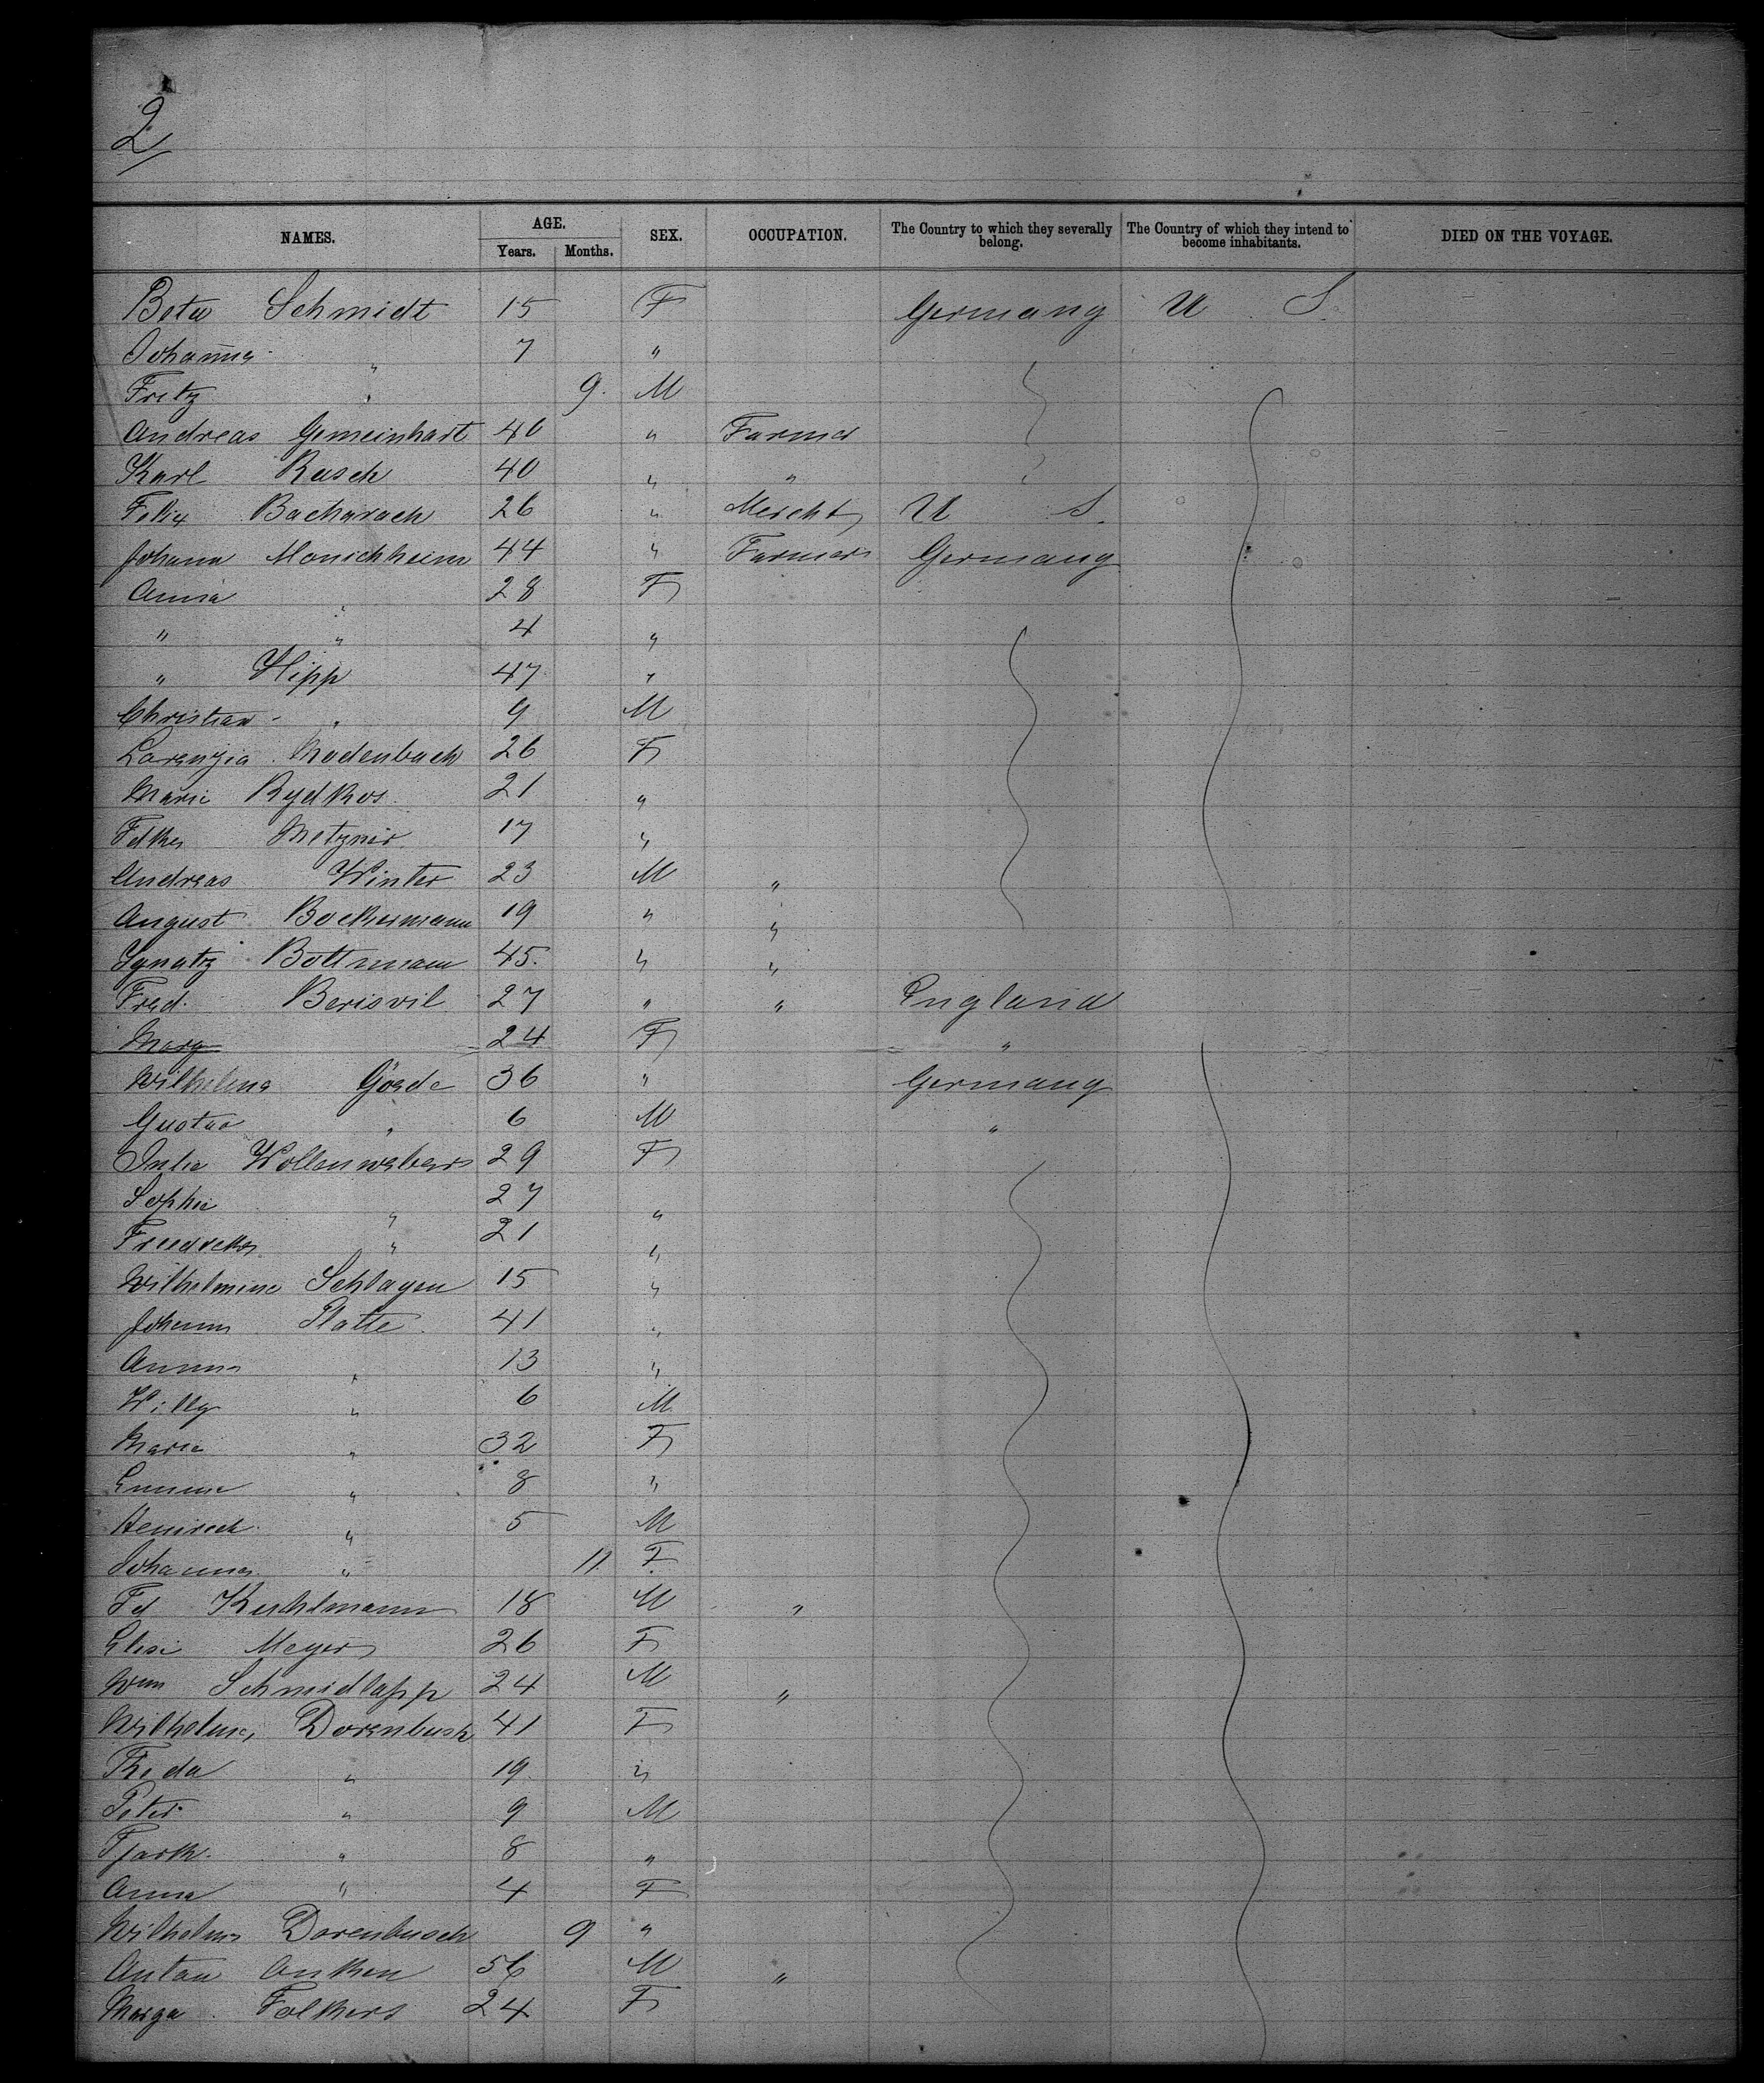 2
NAMES. AGE. SEX. OCCUPATION. The Country to which they severally belong. The Country of which they intend to become inhabitants. DIED ON THE VOYAGE.
Years. Months.
Schmidt 15 F Germany U S.
Johanna " 7 "
Fritz " 9. M
Andreas Gemeinhart 40 " Farmer
Karl Rasch 40 " "
Felix Bacharach 26 " Mercht U S.
Johann Monichheim 44 " Farmer Germany
Anna " 28 F
" " 4 "
" Hipp 47 "
Christian " 9 M
Modenbach 26 F
Marie 21 "
Metzner 17 "
Andreas Winter 23 M "
August Bockermann 19 " "
Ignatz Bottmann 45. " "
Fred. Berisvil 27 " " England
Mary 24 F "
Wilhelma Göede 36 " Germany
Gustav " 6 M "
Julie Wollenwebers 29 F
Sophie " 27 "
" 21 "
Wilhelmine Schlagen 15 "
Johann Platte 41 "
Anna " 13 "
Willy " 6 M
Marie " 32 F
Emma " 8 "
Heinrich " 5 M
Johanna " 11 F
Fd Kuhlmann 18 M "
Elise Meyer 26 F
Wm Schmidlapp 24 M "
Wilhelma Dorenbusch 41 F
Theda " 19 "
Peter " 9 M
Tjark " 8 "
Anna " 4 F
Wilhelma Dorenbusch 9 "
Anton Anken 56 M "
Marga Folkers 24 F